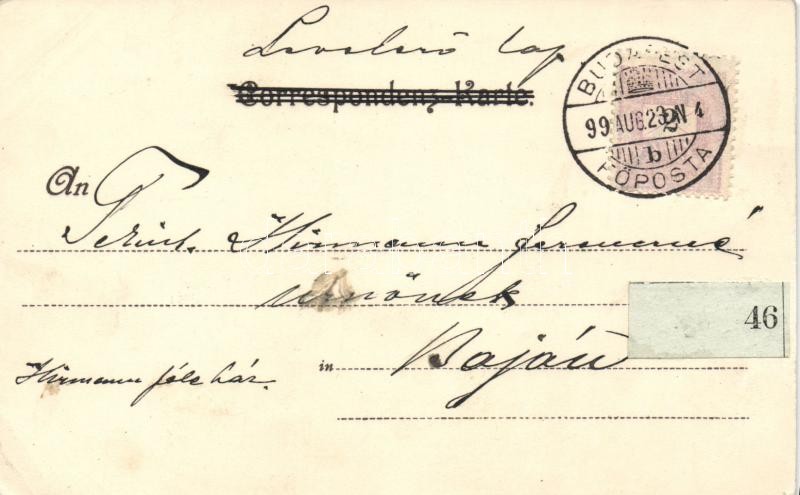 Levelező lap
Correspondenz-Karte.
BUDAPEST
99 AUG. 23 N 4
2
b
FŐPOSTA
An
Tekint. Hirmann Ferencné
urnőnek
46
in Baján
Hirmann féle ház.